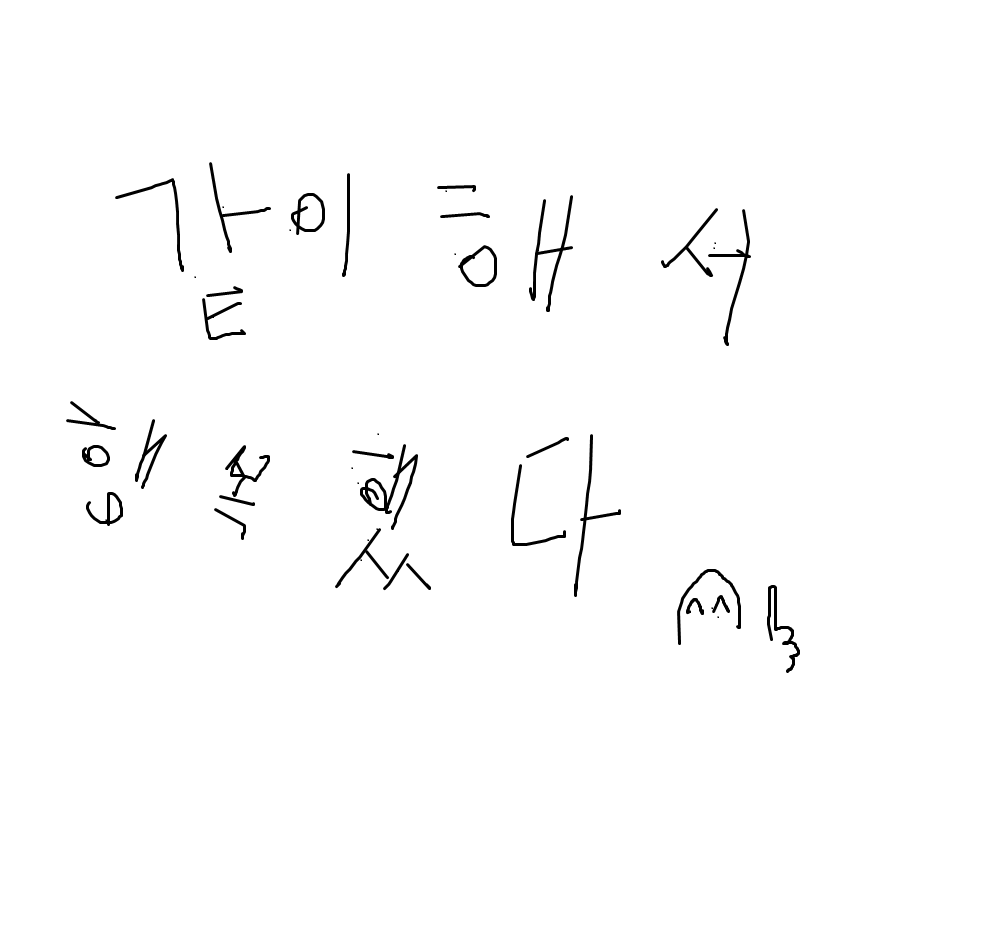 같이 해서
행복했다